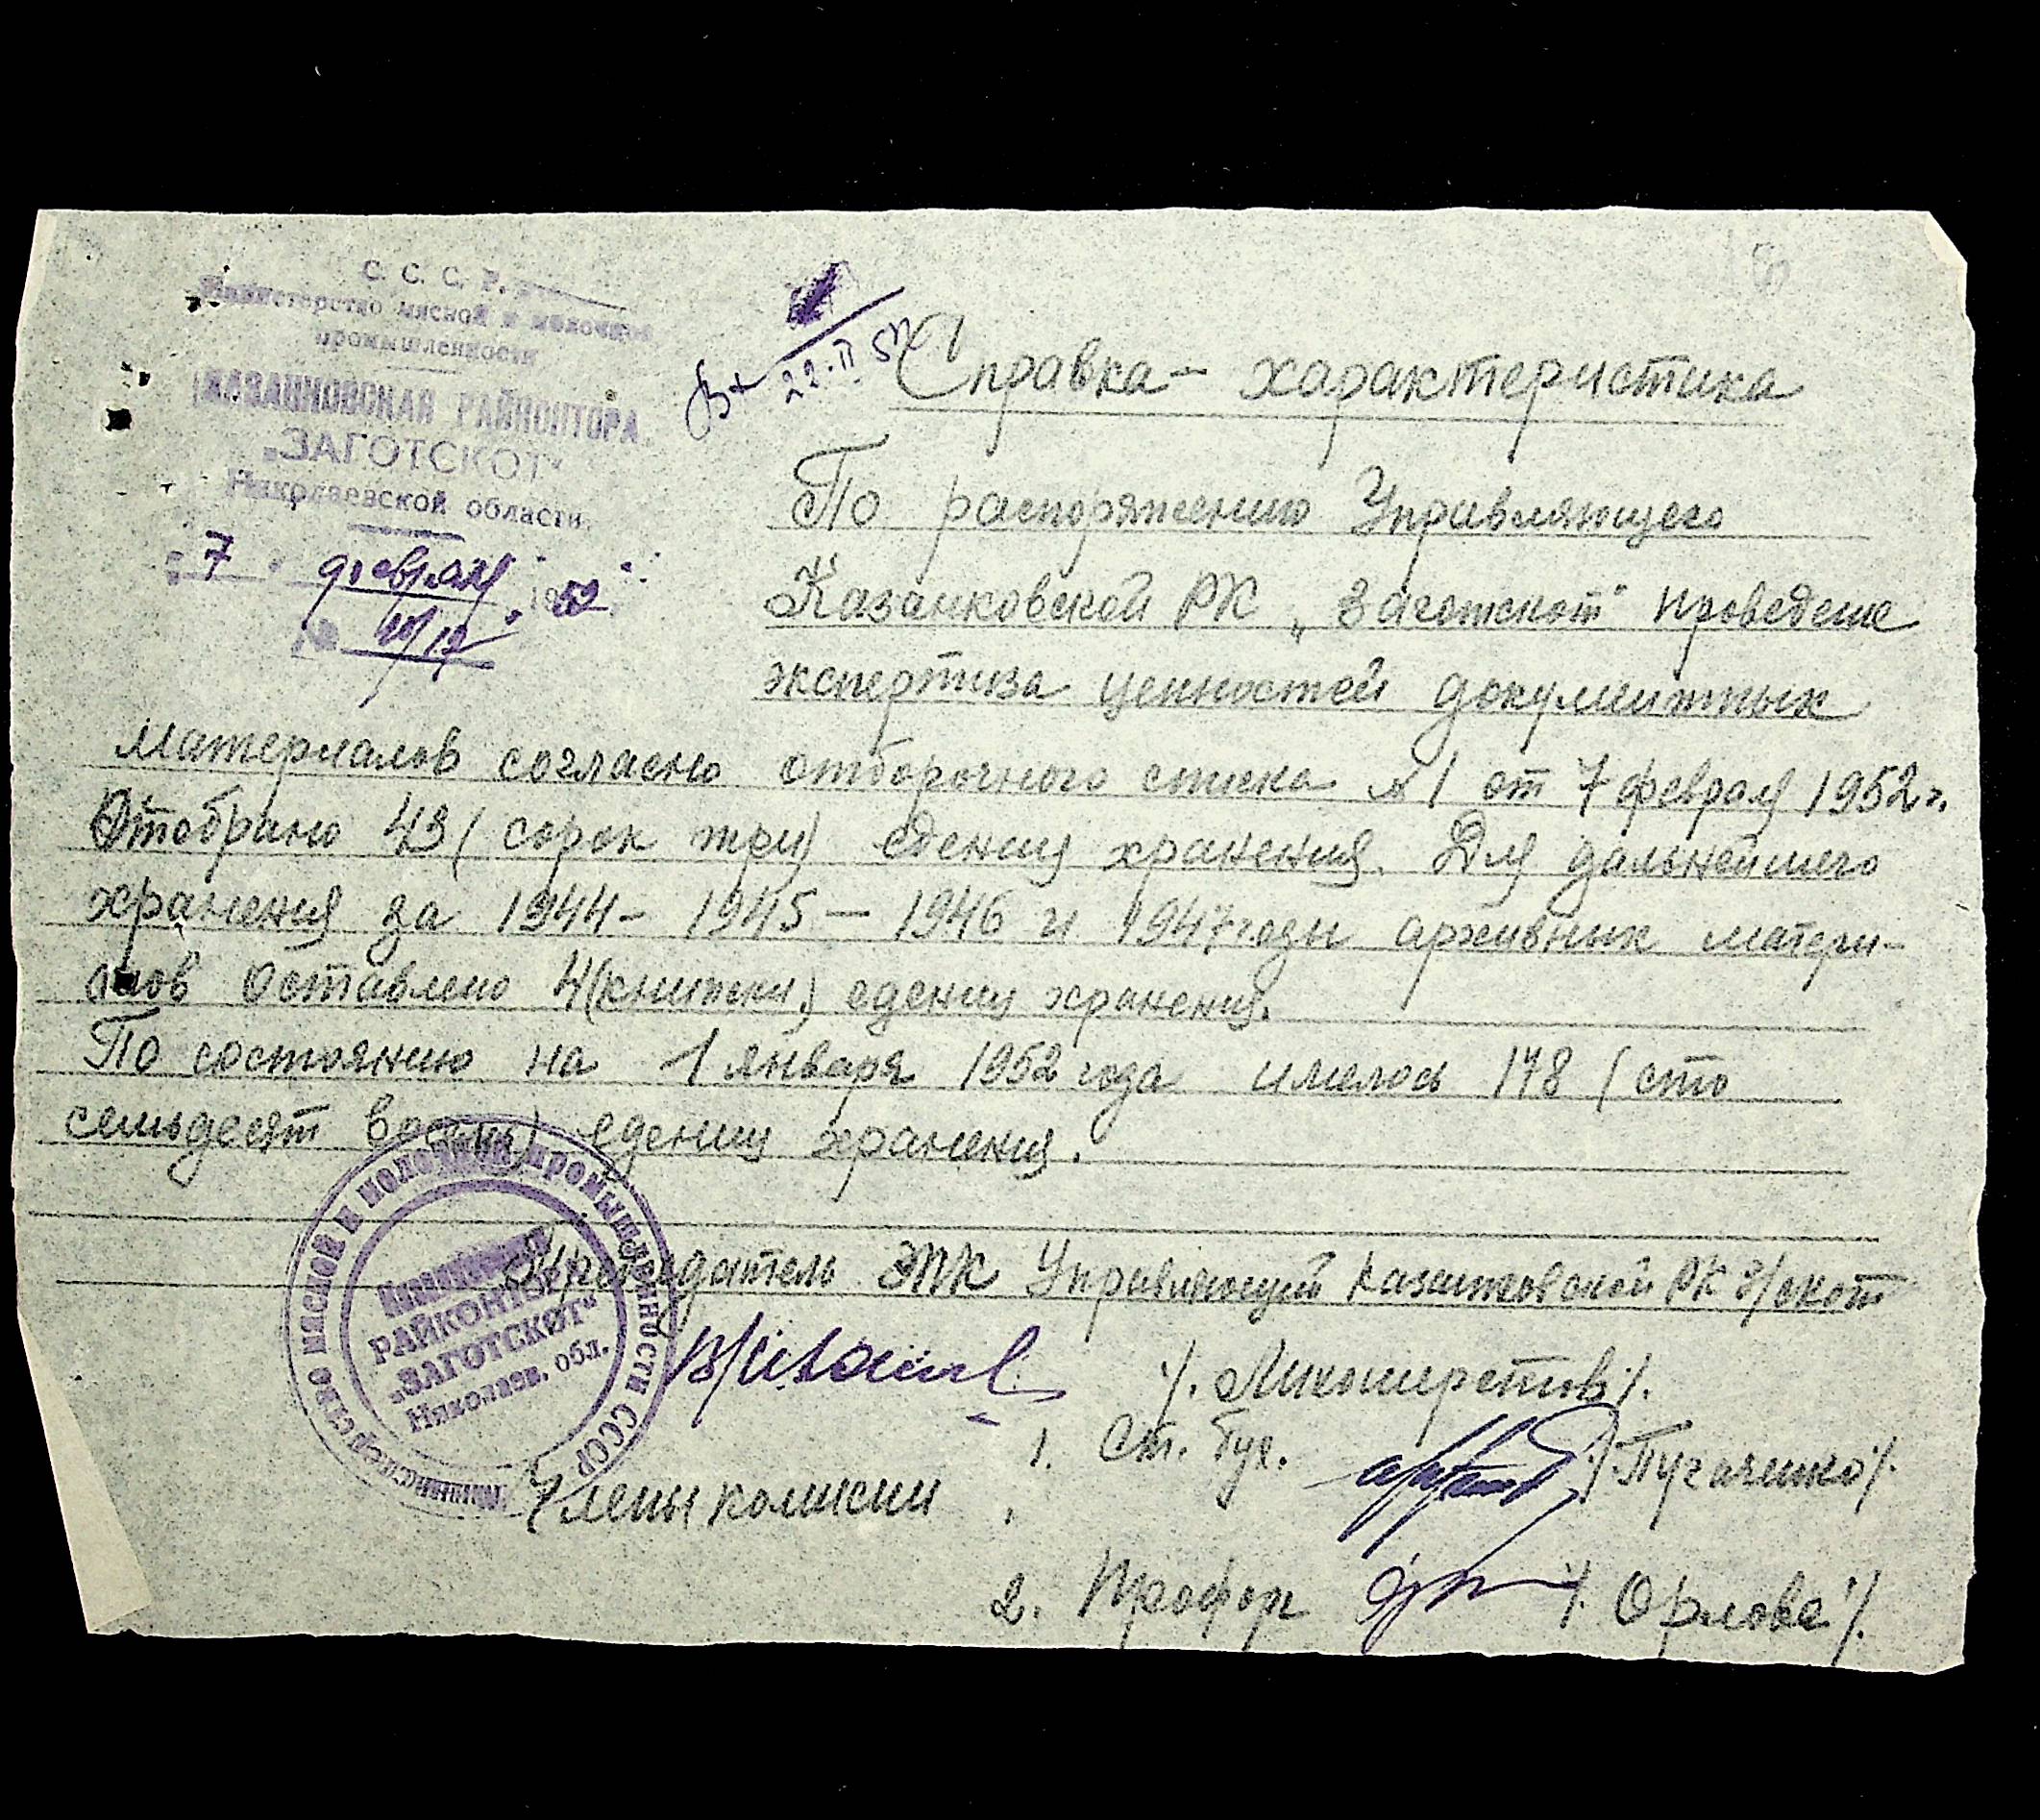 С. С. С. Р.
Министерство мясной и молочной
промышленности
КАЗАНКОВСКАЯ РАЙКОНТОРА
„ЗАГОТСКОТ“
Николаевской области
„7“ февраля 1952
№ 10/12
Вх 22.II 52
Справка – характеристика
По распоряжению Управляющего
Казанковской РК „Заготскот“ проведена
экспертиза ценностей документных
материалов согласно отборочного списка № 1 от 7 февраля 1952 г.
Отобрано 43 (сорок три) едениц хранения. Для дальнейшего
хранения за 1944 – 1945 – 1946 и 1947 годы архивных матери-
алов оставлено 4 (книжки) едениц хранения.
По состоянию на 1 января 1952 года имелось 178 (сто
семьдесят восемь) едениц хранения.
Председатель ЭПК Управляющий Казанковской РК З/скот
/. Лихошерстов /.
1. Ст. бух. /Пугаченко/.
Члены комисии
2. Профорг /. Орлова /.
Министерство мясной и молочной промышленности СССР
РАЙКОНТОРА
„ЗАГОТСКОТ“
Николаев. обл.